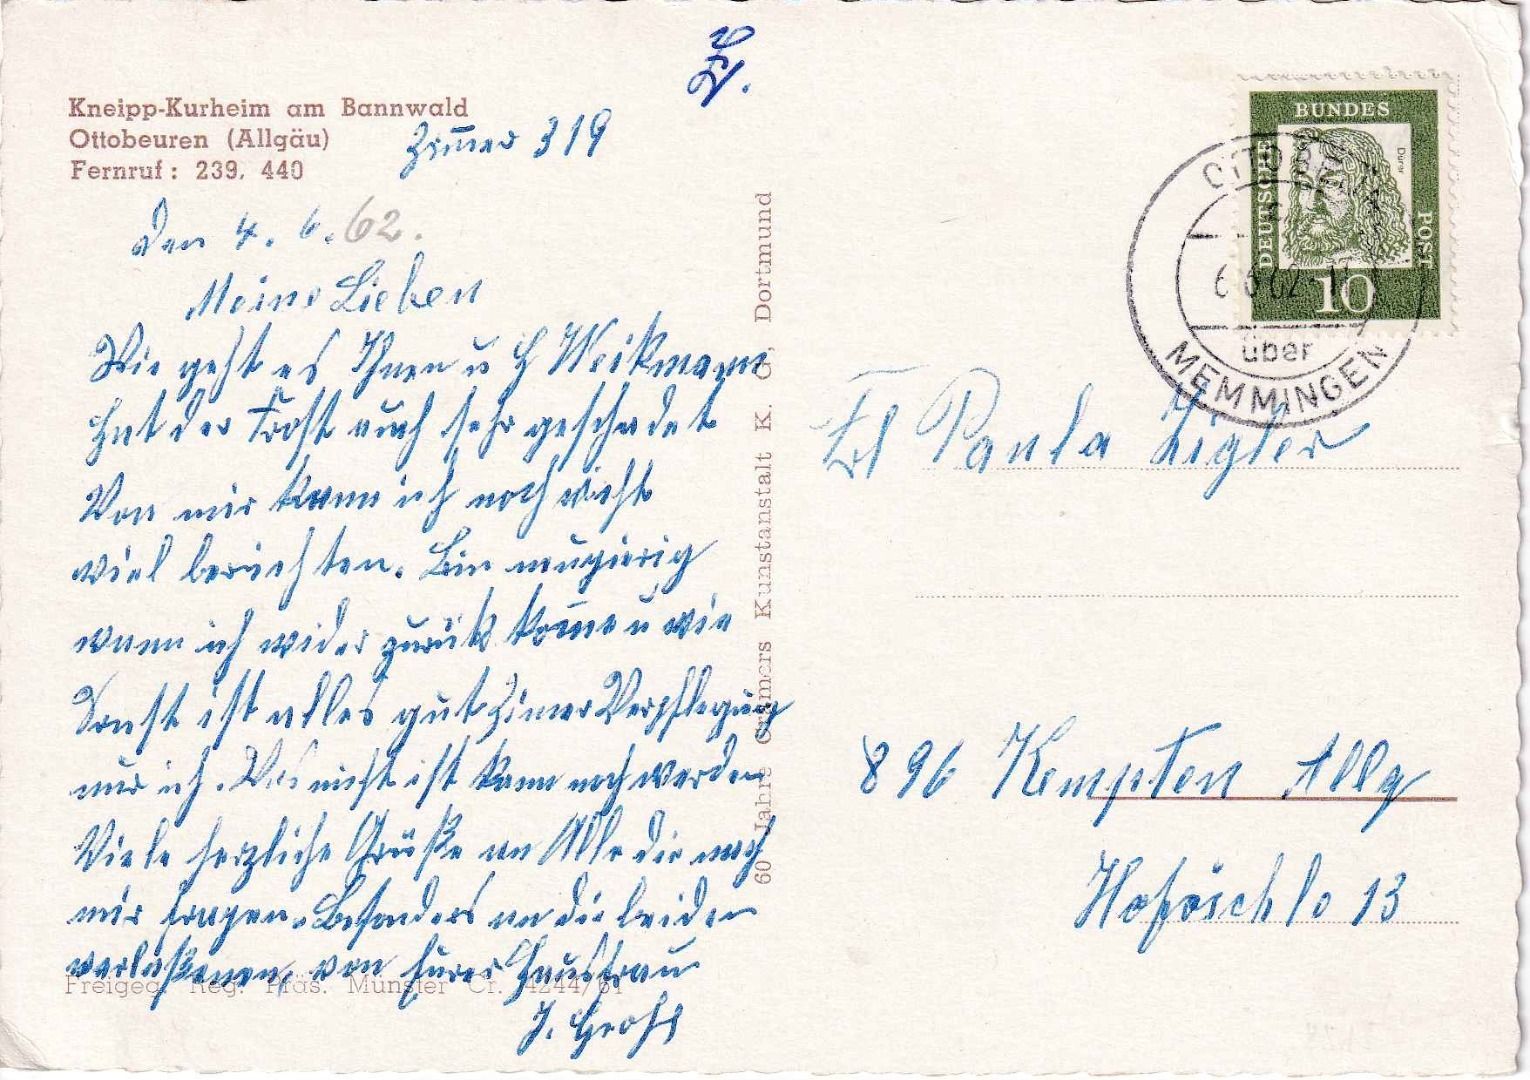 Kneipp-Kurheim am Bannwald
Ottobeuren (Allgäu)
Fernruf: 239, 440
Zim̅er 319
Den 4. 6. 62.
Meine Lieben
Wie geht es Ihnen u H Weikmann
Hat der Frost auch sehr geschadet
Von mir kann ich noch nicht
viel berichten. Bin neugierig
wann ich wider zurük kom̅e u wie
Sonst ist alles gut Zimer Verpflegung
nur ich. Was nicht ist kann noch werden
Viele herzliche Grüße an Alle die nach
mir fragen. Besonders an die beiden
verlaßenen, von Eurer Hausfrau
J. Groß
Freigeg. Reg. Präs. Münster Cr. 4244/61
60 Jahre Cramers Kunstanstalt K. G., Dortmund
DEUTSCHE BUNDES POST
Dürer
10
OTTOBEUREN
6.6.62-17
über
MEMMINGEN
Frl Paula Zigler
896 Kempten Allg